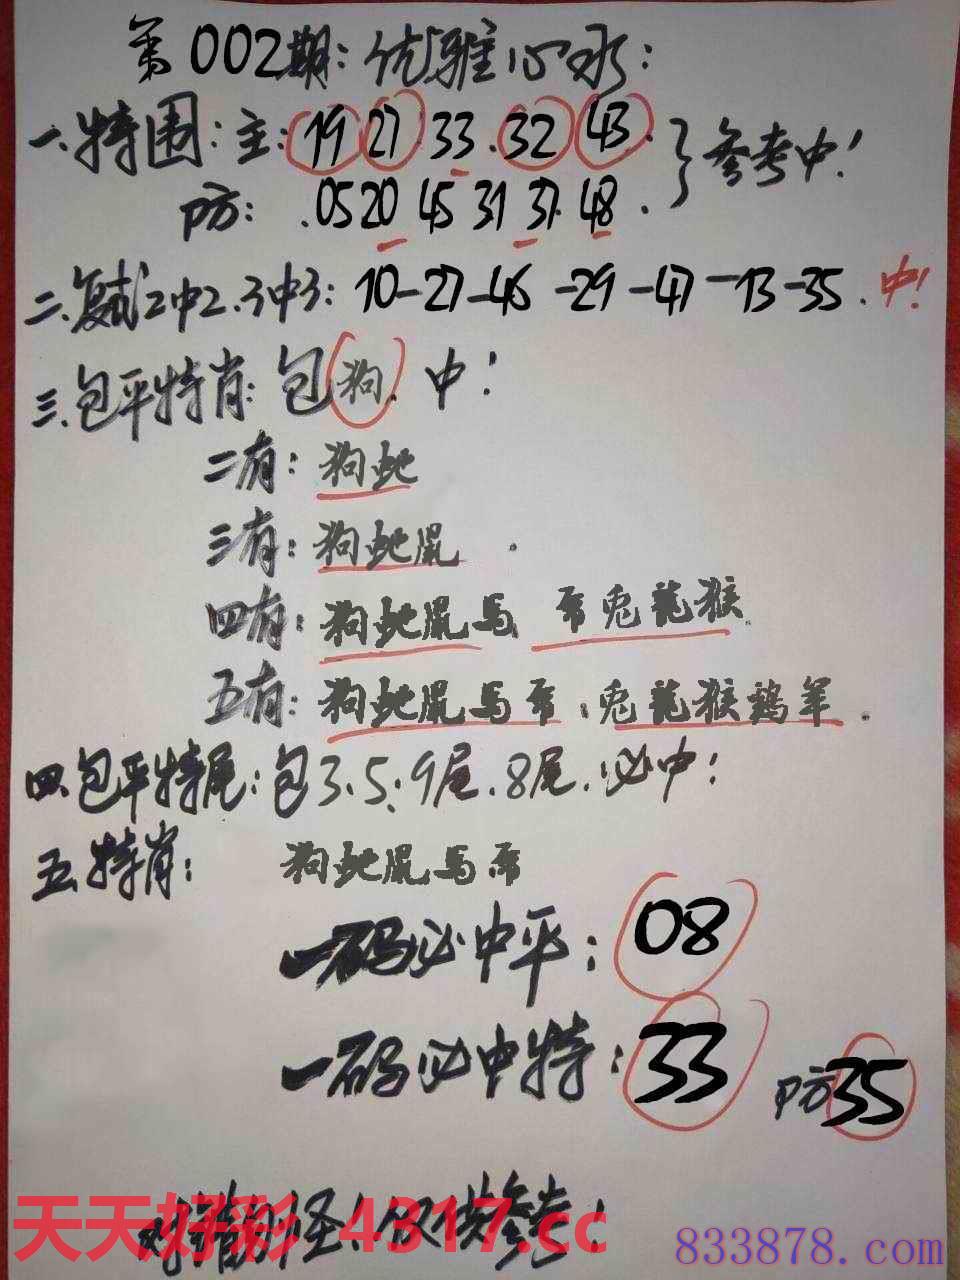 第002期:优雅心水:
一.特围:主:19 27 33.32 43.}参考中!
防:.05 20 45 31 37.48.
二.复试2中2.3中3:10-27-46-29-47-13-35.中!
三.包平特肖:包狗.中!
二有:狗蛇
三有:狗蛇鼠.
四有:狗蛇鼠馬 兎龍猴
五有:狗蛇鼠馬 :兎龍猴鷄羊.
四.包平特尾:包3.5.9尾.8尾.必中!
五.特肖:狗蛇鼠馬
一码必中平:08
一码必中特:33 防35
对错别怪!仅供参考!
天天好彩 4317.cc
833878.com